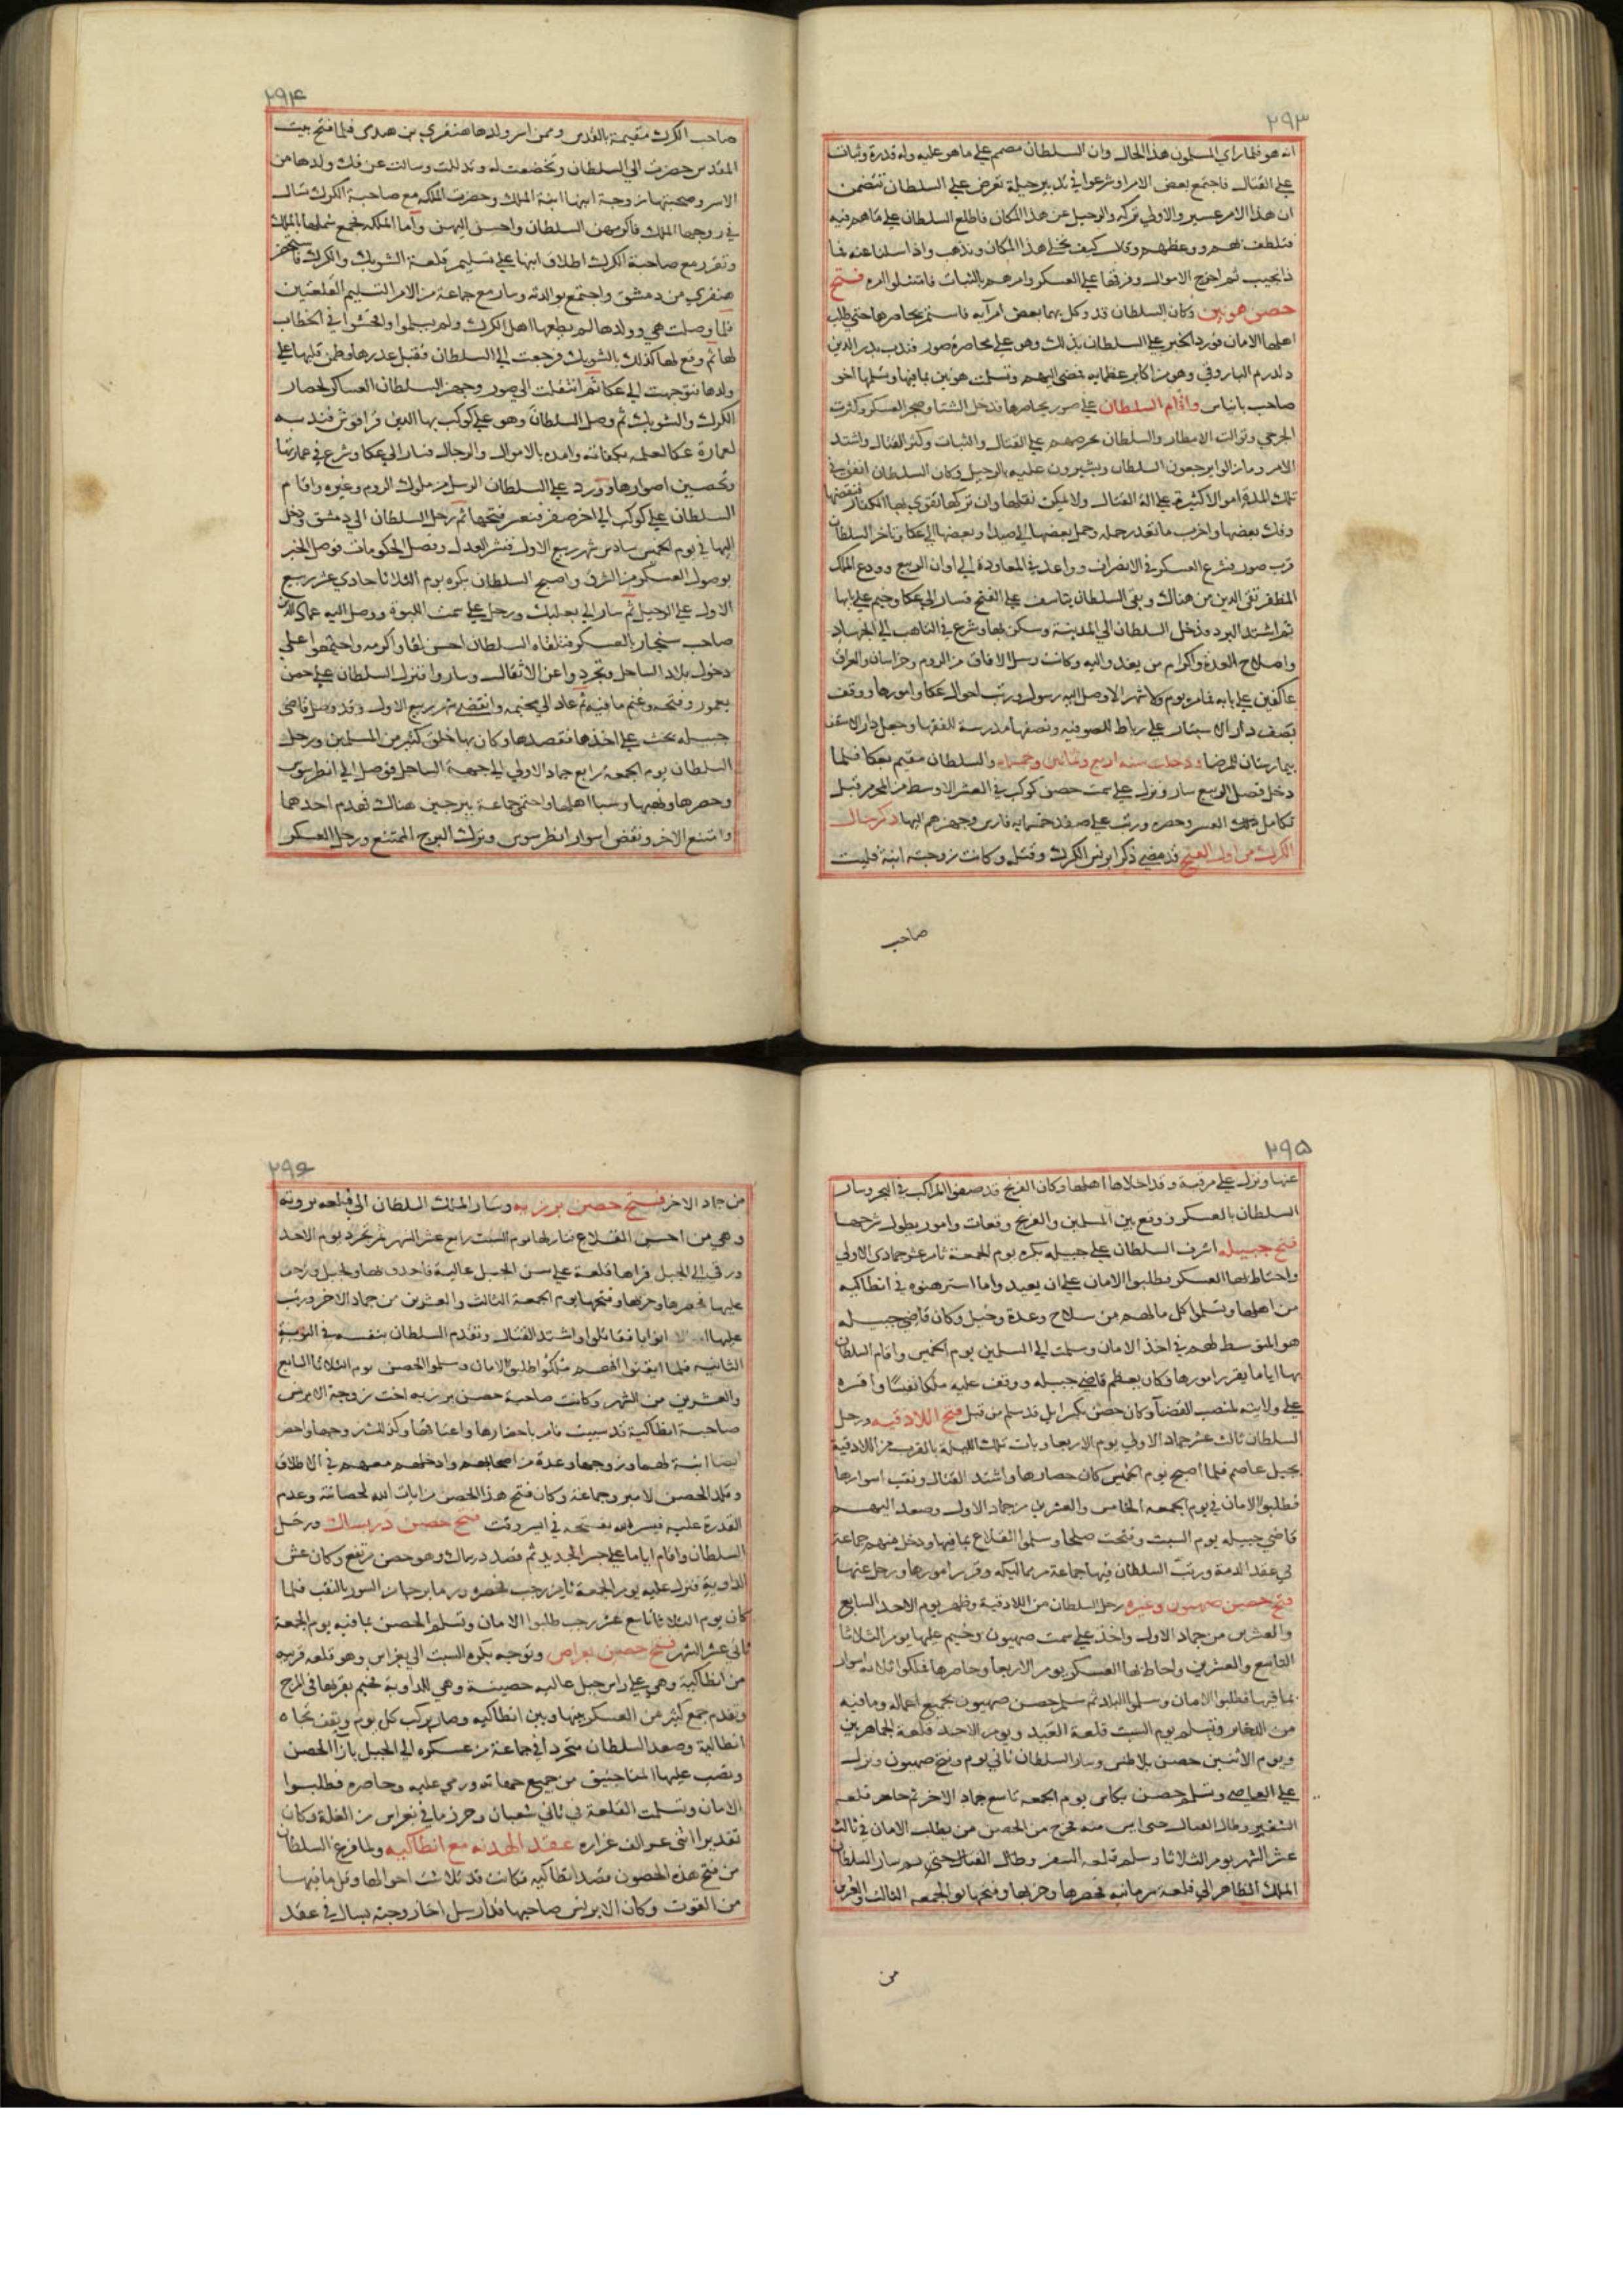 ٢٩٣
انه هو نظار راي المسلمون هذا الحال وان السلطان مصمم علي ما هو عليه وله قدرة وثبات
علي القتال فاجتمع بعض الامرا وشرعوا في تدبير حيلة تعرض علي السلطان تتضمن
ان هذا الامر عسير والاولي تركه والرحيل عن هذا المكان فاطلع السلطان علي ما هم فيه
فتلطف بهم ووعظهم وقال كيف نخلي هذا المكان ونذهب واذا سلنا عنه بما
ذا نجيب ثم اخرج الاموال وفرقها علي العسكر وامرهم بالثبات فامتثلوا امره فتح
حصن هونين وكان السلطان قد وكل بهما بعض امرآيه فاستمر يحاصرها حتي طلب
اهلها الامان فورد الخبر علي السلطان بذلك وهو علي محاصرة صور فندب بدر الدين
دلدرم الياروقي وهو من اكابر عظمايه فمضي اليهم وتسلمت هونين بما فيها وتسلمها اخو
صاحب بانياس واقام السلطان علي صور يحاصرها ودخل الشتا وضجر العسكر وكثرت
الجرحي وتوالت الامطار والسلطان يحرضهم علي القتال والثبات وكثر القتال واشتد
الامر وما زالوا يراجعون السلطان ويشيرون عليه بالرحيل وكان السلطان انفق في
تلك المدة اموالا كثيرة علي الة القتال ولا يمكن نقلها وان تركها تقوي بها الكفار فنقضها
وفك بعضها واحرب ما تعذر حمله وحمل بعضها الي صيدا وبعضها الي عكا وتاخر السلطان
قرب صور فشرع العسكر في الانصراف وواعد في المعاودة الي اوان الربيع وودع الملك
المظفر تقي الدين من هناك وبقي السلطان يتاسف علي الفتح فسار الي عكا وخيم علي بابها
ثم اشتد البرد فدخل السلطان الي المدينة وسكن بها وشرع في التاهب الي الجهاد
واصلاح العدة واكرام من يفد واليه وكانت رسل الافاق من الروم وخراسان والعراق
عاكفين علي بابه فما مر يوم ولا شهر الا وصل اليه رسول ورتب احوال عكا وامورها ووقف
نصف دار الاسبتار علي رباط للصوفيه ونصفها مدرسة للفقها وجعل دار الاسقف
بيمارستان للمرضا ودخلت سنه اربع وثمانين وخمسمايه والسلطان مقيم بعكا فلما
دخل فصل الربيع سار ونزل علي سمت حصن كوكب في العشر الاوسط من المحرم قبل
تكامل العسكر وحصره ورتب علي صفد خمسمايه فارس وجهزهم اليها ذكر حال
الكرك من اول الفتح قد مضي ذكر ابرنس الكرك وقتله وكانت زوجته ابنة فليب
صاحب
٢٩٤
صاحب الكرك مقيمة بالقدس وممن اسر ولدها هنفري بن هدمي فلما فتح بيت
المقدس حضرت الي السلطان وتخضعت له وتذللت وسالت عن فك ولدها من
الاسر وصحبتها زوجة ابنها ابنة الملك وحضرت الملكه مع صاحبة الكرك تسال
في زوجها الملك فاكرمهن السلطان واحسن اليهن واما الملكه فجمع شملها بالملك
وتقرر مع صاحبة الكرك اطلاق ابنها علي تسليم قلعة الشوبك والكرك فاستحضر
هنفري من دمشق واجتمع بوالدته وسار مع جماعة من الامرا لتسليم القلعتين
فلما وصلت هي وولدها لم يطعها اهل الكرك ولم يسلموا وافحشوا في الخطاب
لها ثم وقع لها كذلك بالشوبك فرجعت الي السلطان فقبل عذرها وطمن قلبها علي
ولدها فتوجهت الي عكا ثم انتقلت الي صور وجهز السلطان العساكر لحصار
الكرك والشوبك ثم وصل السلطان وهو علي كوكب بها الدين قراقوش فندبه
لعمارة عكا لعلمه بكفاته وامده بالاموال والرجال فسار الي عكا وشرع في عمارتها
وتحصين اصوارها وورد علي السلطان الرسل من ملوك الروم وغيره واقام
السلطان علي كوكب الي اخر صفر فتعسر فتحها ثم رحل السلطان الي دمشق ودخل
اليها في يوم الخميس سادس شهر ربيع الاول فنشر العدل وفصل الحكومات فوصل الخبر
بوصول العسكر من الشرق واصبح السلطان بكره يوم الثلاثا حادي عشر ربيع
الاول علي الرحيل ثم سار الي بعلبك ورحل علي سمت اللبوة ووصل اليه عماد الدين
صاحب سنجار بالعسكر فتلقاه السلطان احسن لقا واكرمه واجتمعوا علي
دخول بلاد الساحل وتجردوا عن الاثقال وساروا فنزل السلطان علي حصن
يحمور وفتحه وغنم ما فيه ثم عاد الي مخيمه وانقضي شهر ربيع الاول وقد وصل قاضي
جبيله يحث علي اخذها فقصدها وكان بها خلق كثير من المسلمين ورحل
السلطان يوم الجمعه رابع جماد الاولي الي جهة الساحل فوصل الي انطرسوس
وحصرها ونهبها وسبا اهلها واحتمي جماعة ببرجين هناك فهدم احدهما
وامتنع الاخر ونقض اسوار انطرسوس وترك البرج الممتنع ورحل العسكر
٢٩٥
عنها ونزل علي مرقية وقد اخلاها اهلها وكان الفرنج قد صفوا المراكب في البحر وسار
السلطان بالعسكر ووقع بين المسلمين والفرنج وقعات وامور يطول شرحها
فتح جبيله اشرف السلطان علي جبيله بكره يوم الجمعة ثامن عشر جمادي الاولي
واحتاط بها العسكر فطلبوا الامان علي ان يعيدوا ما استرهنوه في انطاكيه
من اهلها وتسلم كل ما لهم من سلاح وعدة وخيل وكان قاضي جبيله
هو المتوسط لهم في اخذ الامان وسلمت الي المسلمين يوم الخميس واقام السلطان
بها اياما يقرر امورها وكان يعظم قاضي جبيله ووقف عليه ملكا نفيسا واقره
علي ولايته بمنصب القضا وكان حصن بكسرايل قد سلم من قبل فتح اللادقيه ورحل
السلطان ثالث عشر جماد الاولي يوم الاربعا وبات تلك الليلة بالقرب من اللادقية
بجبل عاصم فلما اصبح يوم الخميس كان حصارها واشتد القتال ونقب اسوارها
فطلبوا الامان في يوم الجمعه الخامس والعشرين من جماد الاول وصعد اليهم
قاضي جبيله يوم السبت وفتحت صلحا وسلموا القلاع بما فيها ودخل منهم جماعة
في عقد الذمة ورتب السلطان فيها جماعة من مماليكه وقرر امورها ورحل عنها
فتح حصن صهيون وغيره رحل السلطان من اللادقية وظهر يوم الاحد السابع
والعشرين من جماد الاول واخذ علي سمت صهيون وخيم عليها يوم الثلاثا
التاسع والعشرين واحاط بها العسكر يوم الاربعا وحاصرها فملكوا ثلاثه اسوار
بما فيها فطلبوا الامان وسلموا البلد ثم سلم حصن صهيون بجميع اعماله وما فيه
من الذخاير وتسلم يوم السبت قلعة العيد ويوم الاحد قلعة الجماهرين
ويوم الاثنين حصن بلاطنس وسار السلطان ثاني يوم فتح صهيون ونزل
علي العاصي وتسلم حصن بكاس يوم الجمعه تاسع جماد الاخر ثم حاصر قلعه
الشغر وطال القتال حتي ايس منه فخرج من الحصن من يطلب الامان في ثالث
عشر الشهر يوم الثلاثا وسلم قلعه الشغر وطال القتال حتي ثم سار السلطان
الملك الظاهر الي قلعة سرمانيه فحصرها وخربها وفتحها يوم الجمعه الثالث والعشرين
من
٢٩٦
من جماد الاخر فتح حصن برزيه وسار الملك السلطان الي قلعه برزيه
وهي من احسن القلاع فنازلها يوم السبت رابع عشر الشهر ثم تجرد يوم الاحد
ورقي الي الجبل فراها قلعة علي سن الجبل عالية فاحدق بها وبالجبل وزحف
عليها فحصرها وخربها وفتحها يوم الجمعة الثالث والعشرين من جماد الاخر ورتب
عليها ابوابا فقاتلوا واشتد القتال وتقدم السلطان بنفسه في النوبة
الثانيه فلما ايقنوا انهم ملكوا طلبوا الامان وسلموا الحصن يوم الثلاثا السابع
والعشرين من الشهر وكانت صاحبة حصن برزيه اخت زوجة الابرنس
صاحبة انطاكية قد سبيت فامر باحضارها واعتاقها وكذلك زوجها واحضر
ايضا ابنة لهما وزوجها وعدة من اصحابهم وادخلهم معهم في الاطلاق
وقلد الحصن لامير وجماعته وكان فتح هذا الحصن من ايات الله لحصانته وعدم
القدرة عليه فيسر الله بفتحه في ايسر وقت فتح حصن دربساك ورحل
السلطان واقام اياما علي جسر الحديد ثم قصد دربساك وهو حصن مرتفع وكان عش
الداوية فنزل عليه يوم الجمعة ثامن رجب فحصره ورما برجها من السور بالنقب فلما
كان يوم الثلاثا تاسع عشر رجب طلبوا الامان وتسلم الحصن بما فيه يوم الجمعة
ثاني عشر الشهر فتح حصن بغراس وتوجه بكره السبت الي بغراس وهو قلعه قريبه
من انطاكية وهي علي راس جبل عاليه حصينة وهي للداوية فخيم بقربها في المرج
وتقدم جمع كثير من العسكر بينها وبين انطاكيه وصار يركب كل يوم ويقف تجاه
انطاكية وصعد السلطان متجردا في جماعة من عسكره الي الجبل بازا الحصن
ونصب عليها المناجنيق من جميع جهاته ورمي عليه وحاصره فطلبوا
الامان وتسلمت القلعة في ثاني شعبان وحرز ما في بغراس من الغلة وكان
تقديرا اثني عشر الف غراره عقد الهدنه مع انطاكيه ولما فرغ السلطان
من فتح هذه الحصون قصد انطاكيه فكانت قد تلاشت احوالها وقل ما فيها
من القوت وكان الابرنس صاحبها قد ارسل اخا زوجته يسال في عقد